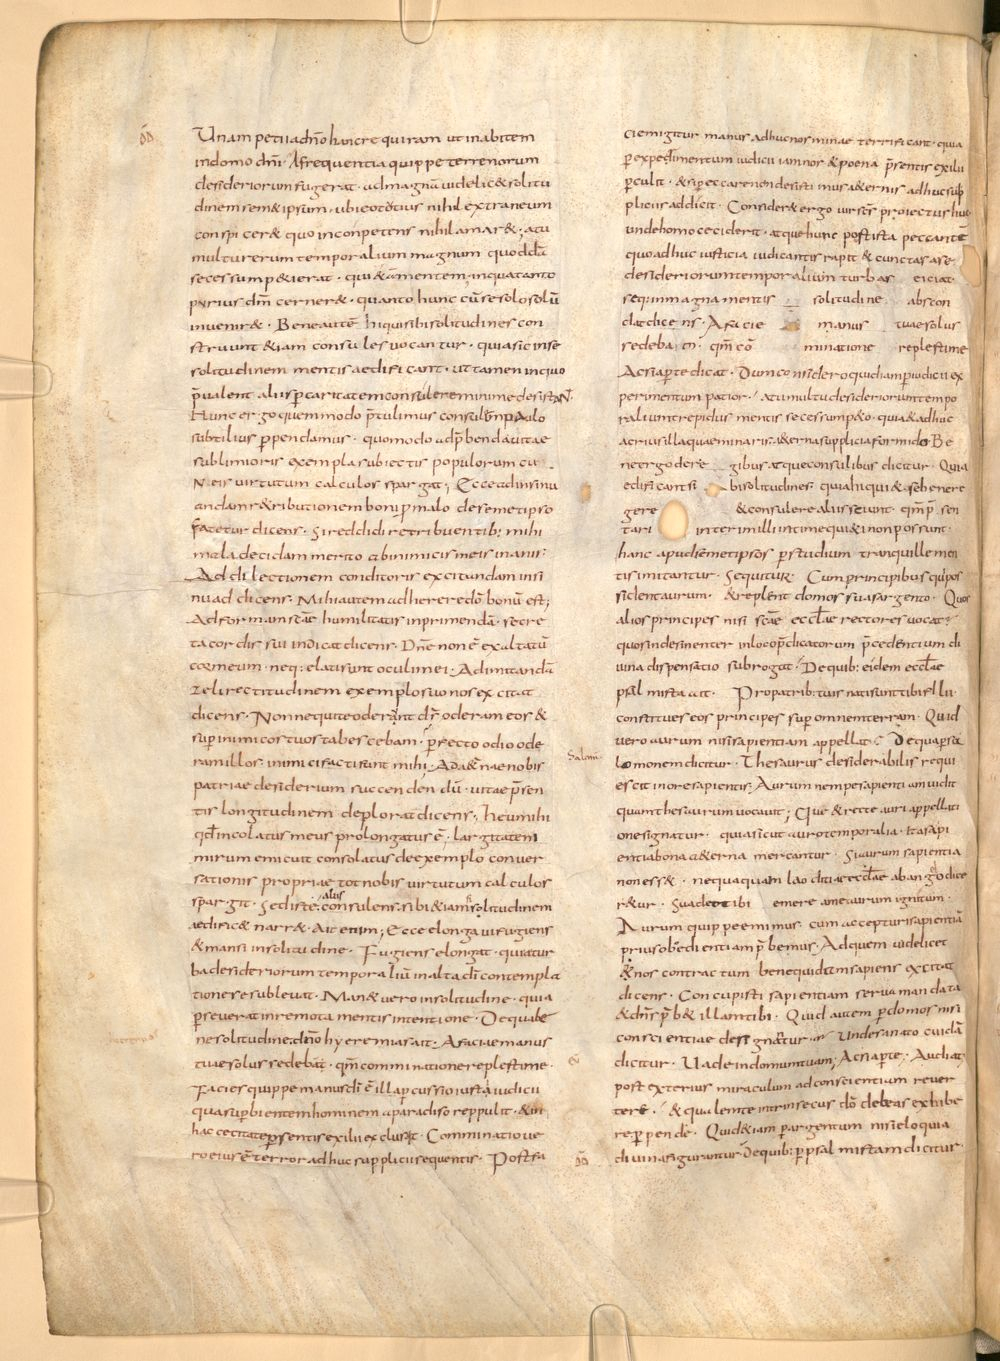 Unam petii a dño hanc requiram ut inhabitem
in domo dñi · A frequentia quippe terrenorum
desideriorum fugerat · ad magnā videlic& solitu
dinem sem&ipsum · ubi eo tutius nihil extraneum
conspicer& quo inconpetens nihil amar&; a tu
multu rerum temporalium magnum quoddā
secessum p&ierat · qui &iā mentem · in qua tanto
purius dm̄ cerner& · quanto hunc cū se solo solū
invenir& · Bene autē hi qui sibi solitudines con
struunt &iam consules vocantur · quia sic in se
solitudinem mentis aedificant · ut tamen in quo
p̄valent aliis p caritatem consulere minime desistaN̄ ·
Hunc ergo quem modo p̄tulimus consulēm paulo
subtilius p̱pendamus · quomodo ad p̄benda vitae
sublimioris exempla subiectis populorum cu
Neis virtutum calculos spargat; Ecce ad insinu
andam r&ributionem boni p malo de semetipso
fatetur dicens · Si reddidi retribuentib: mihi
mala decidam merito ab inimicis meis inanis:
Ad dilectionem conditoris excitandam insi
nuad dicens · Mihi autem adherere dō bonū est;
Ad formam scāe humilitatis inprimendā · secre
ta cordis sui indicat dicens · Dn̄e non ē exaltatū
cor meum · neq: elati sunt oculi mei · Ad imitandā
zeli rectitudinem exemplo suo nos excitat
dicens · Nonne qui te oderunt dn̄e oderam eos &
sup inimicos tuos tabescebam · p̄fecto odio ode
ram illos · inimici facti sunt mihi · Ad a&nae nobis
patriae desiderium succendendū · vitae p̄sen
tis longitudinem deplorat dicens; heu mihi
qd̄ incolatus meus prolongatus ē · largitatem
mirum emicuit consolatus de exemplo conver
sationis propriae tot nobis virtutum calculos
spargit · Sed iste aliis consulens · sibi &iam solitudinem
aedific& narr& · Ait enim; Ecce elongavi fugiens
& mansi in solitudine · Fugiens elongat · qui a tur
ba desideriorum temporaliū in alta dī contempla
tione se sublevat · Man& vero in solitudine · quia
pseverat in remota mentis intentione · De qua be
ne solitudine dño hyeremias ait · A facie manus
tuae solus sedebā · qm̄ comminatione replesti me ·
Facies quippe manus dī ē illa p̱cussio iusta iudicii
qua sup̱bientem hominem a paradiso reppulit · & in
hac cecitate p̱sentis exilii exclusit · Comminatio ve
ro eius ē terror adhuc supplicii sequentis · Post fa
ciem igitur manus adhuc nos minae terrificant · quia
p̱ experimentum iudicii iam nos & poena p̄sentis exilii
p̱culit · & si peccare non desistimus a&ernis adhuc sup
pliciis addicit · Consider& ergo vir scs̄ proiectus huc
unde homo ceciderit · atque hunc post ista peccantē
quo adhuc iusticia iudicantis rapit & cunctas a se
desideriorum temporalium turbas eiciat ·
seq: in magna mentis solitudine abscon
dat dicens · A facie manus tuae solus
sedebam · qm̄ cō minatione replesti me
Ac si apte dicat · Dum considero quid iam p iudicii ex
perimentum patior · a tumultu desideriorum tempo
ralium trepidus mentis secessum p&o · quia & adhuc
acrius illa quae minaris · a&erna supplicia formido Be
ne ergo de re gibus atque consulibus dicitur · Quia
edificant si bi solitudines · quia hi qui & se bene re
gere & consulere aliis sciunt · qm̄ p̄ sen
tari interim illi intime qui & i non possunt ·
hanc apud sem&ipsos p studium tranquille men
tis imitantur · Sequitur · Cum principibus qui pos
sident aurum · & replent domos suas argento · Quos
alios principes nisi scāe eccłae rectores vocat?
quos indesinenter in loco p̄dicatorum p̄cedentium di
vina dispensatio subrogat · De quib: eidem eccłae
psalmista ait · Pro patrib: tuis nati sunt tibi filii
constitues eos principes sup omnem terram · Quid
vero aurum nisi sapientiam appellat? De qua p sa
lomonem dicitur · Thesaurus desiderabilis requi
escit in ore sapientis · Aurum nempe sapientiam vidit
quam thesaurum vocavit; Que & recte auri appellati
one signatur · quia sicut auro temporalia · ita sapi
entia bona a&erna mercantur · Si aurum sapientia
non ess& · nequaquam laoditiae eccłae ab angelo dice
r&ur · Suadeo tibi emere a me aurum ignitum ·
Aurum quippe emimus · cum accepturi sapientiā
prius obedientiam p̄bemus · Ad quem videlicet
&nos contractum bene quidam sapiens excitat
dicens · Concupisti sapientiam serva mandata
& dn̄s p̄b& illam tibi · Quid autem p domos nisi
conscientiae designantur · Unde sanato cuidā
dicitur · Vade in domum tuam; Ac si apte · Audiat
post exterius miraculum ad conscientiam rever
tere · & qualem te intrinsecus dō debeas exhibe
re p̱pende · Quid &iam p argentum nisi eloquia
divina figurantur · De quib: p psalmistam dicitur
Salom